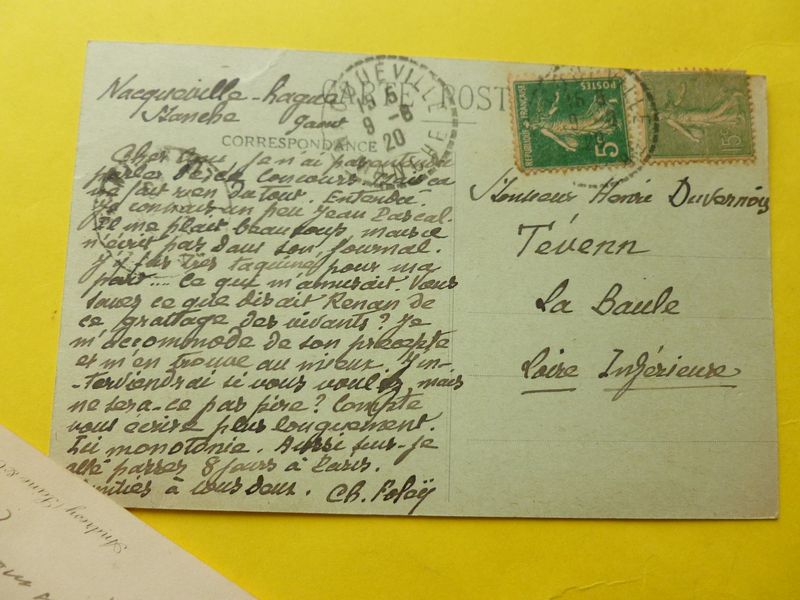 Nacqueville-Hague
Manche
CARTE POST
CORRESPONDANCE
QUEVILLE
15
9 -8
20
REPUBLIQUE FRANÇAISE
POSTES
5c
15c
Cher ami, je n'ai pas entendu
parler de ce concours. Mais ça
ne fait rien du tout. Entendu.
Je connais un peu Jean Pascal.
Il me plaît beaucoup, mais je
n'écris pas dans son journal.
J'y suis très taquiné, pour ma
part.... Ce qui m'amusait. Vous
savez ce que disait Renan de
ce grattage des vivants? Je
m'accommode de son précepte
et m'en trouve au mieux. J'in-
-terviendrai si vous voulez, mais
ne sera-ce pas pire? Compte
vous écrire plus longuement.
Ici monotonie. Aussi suis-je
allé passer 8 jours à Paris.
Amitiés à vous deux. Ch. Foleÿ
Monsieur Henri Duvernois
Tévenn
La Baule
Loire Inférieure